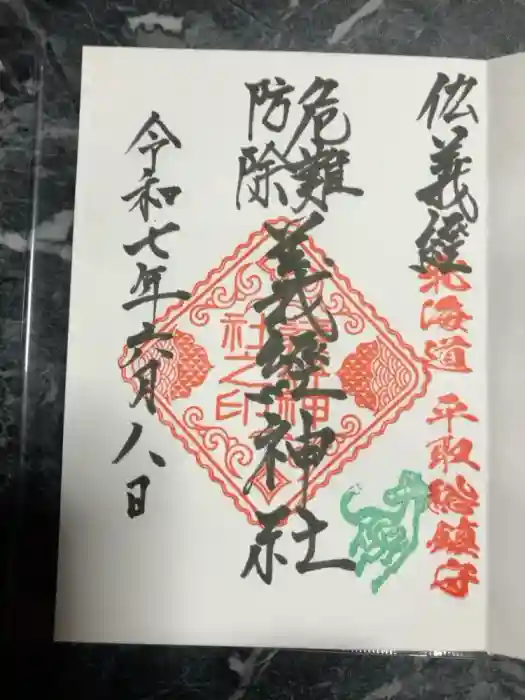 仏義經
北海道 平取総鎮守
危難
防除
義經神社
義經神
社之印
令和七年六月八日